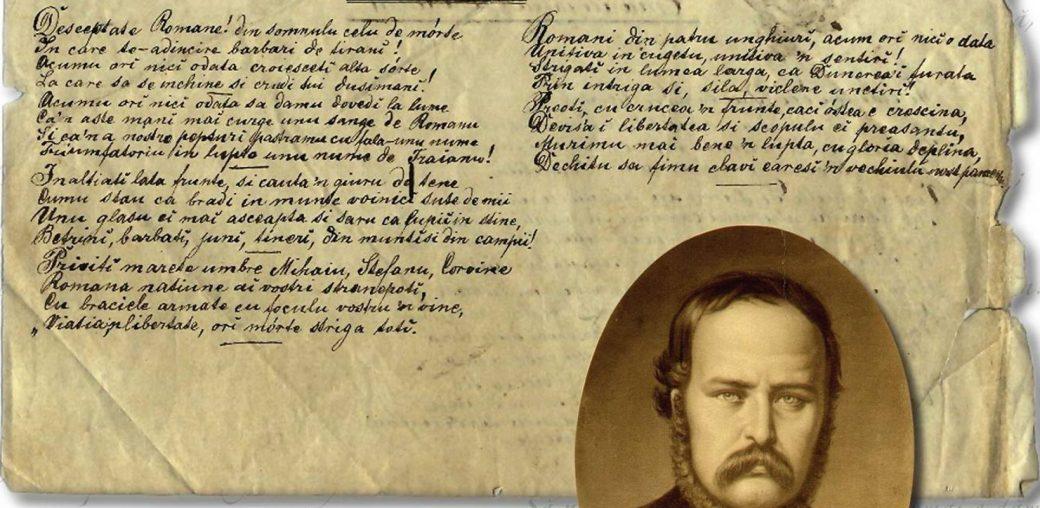 Desceptate Romane! din somnulu celu de mórte
In care te-adincire barbari de tirani!
Acumu ori nici odata croiesceti alta sórte
La care sa se'nchine si crudi tui dusimani!
Acumu ori nici odata sa damu dovedi la lume
Ca'n aste mani mai curge unu sange de Romanu
Si ca'n a nostre pepturi pastramu cu fala-unu nume
Triumfatoriu in lupte unu nume de Traianu!
Inaltiati lata frunte, si cauta'n giuru de tene
Cumu stau ca bradi in munte voinici sute de mii
Unu glasu ei mai ascepta si saru ca lupii in stine,
Betrini, barbati, juni, tineri, din munti si din campii!
Priviti marete umbre Mihaiu, Stefanu, Corvine
Romana natiune ai vostri stranepoti,
Cu braciele armate cu foculu vostru'n vine,
„Viatia'n libertate, ori mórte striga toti.
Romani din patru unghiuri, acum ori nici o data
Uniti-va in cugetu, uniti-va 'n sentiri!
Strigati in lumea larga, ca Dunerea-i furata
Prin intriga si, sila, viclene unetiri!
Preoti, cu crucea 'n frunte, caci óstea e crescina,
Devis'a-i libertatea si scopulu ei preasantu,
Murimu mai bene 'n lupta, cu gloria deplina,
Dechitu sa fimu clavi earesi 'n vechiulu nost